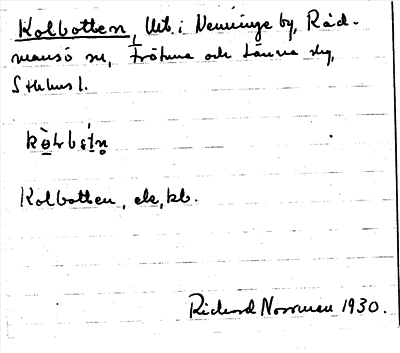 Kolbotten, Utb. i Nenninge by, Råd-
mansö sn, Frötuna och Länna skg,
Sthlms l.
Kolbotten, ek, kb.
Richard Norrman 1930.